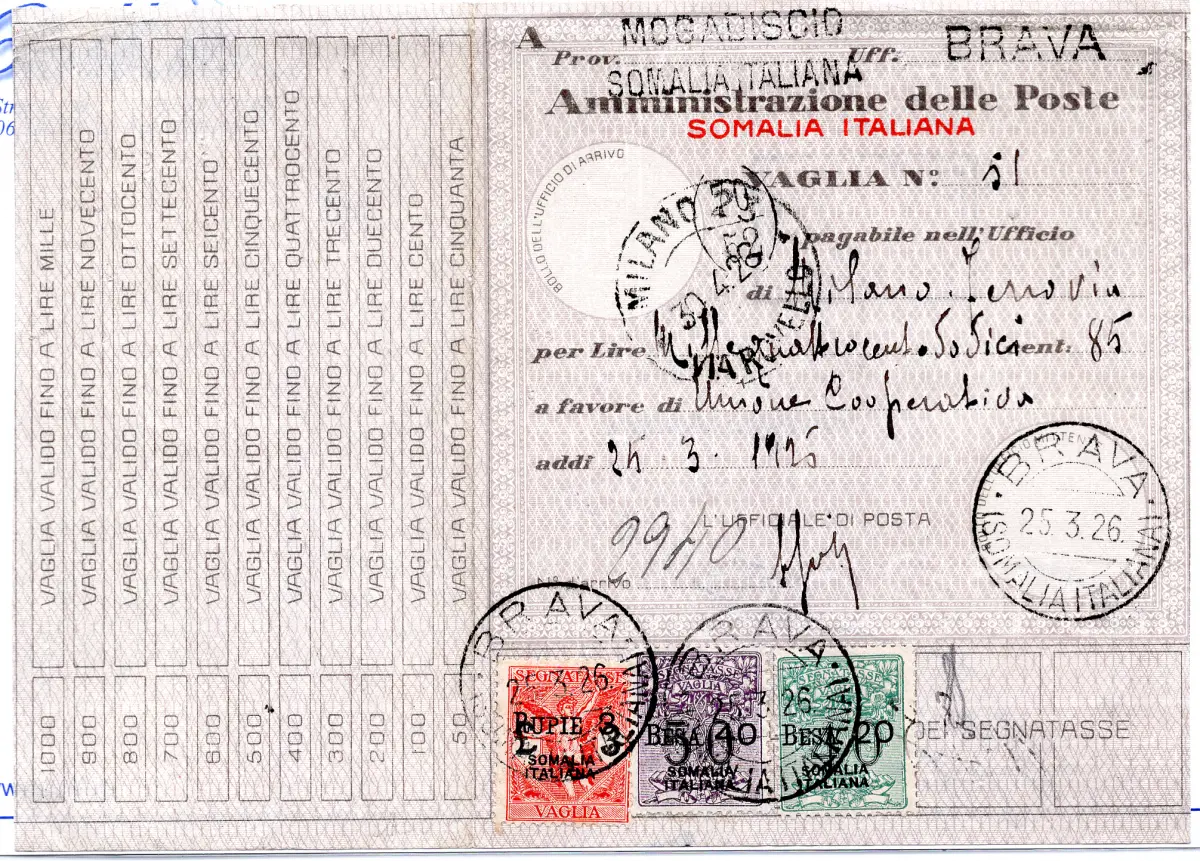 VAGLIA VALIDO FINO A LIRE MILLE
1000
VAGLIA VALIDO FINO A LIRE NOVECENTO
900
VAGLIA VALIDO FINO A LIRE OTTOCENTO
800
VAGLIA VALIDO FINO A LIRE SETTECENTO
700
VAGLIA VALIDO FINO A LIRE SEICENTO
600
VAGLIA VALIDO FINO A LIRE CINQUECENTO
500
VAGLIA VALIDO FINO A LIRE QUATTROCENTO
400
VAGLIA VALIDO FINO A LIRE TRECENTO
300
VAGLIA VALIDO FINO A LIRE DUECENTO
200
VAGLIA VALIDO FINO A LIRE CENTO
100
VAGLIA VALIDO FINO A LIRE CINQUANTA
50
A
Prov. MOGADISCIO Uff. BRAVA
SOMALIA ITALIANA
Amministrazione delle Poste
SOMALIA ITALIANA
BOLLO DELL'UFFICIO DI ARRIVO
VAGLIA Nº: 51
pagabile nell'Ufficio
di Milano Ferrovia
MILANO 20
30.4.26
VIA ROVELLO
per Lire Millequattrocentododici cent: 85
a favore di Unione Cooperativa
addì 25 . 3 . 1926
L'UFFICIALE DI POSTA
Nº d'arrivo 9940
BRAVA
25.3.26.
(SOMALIA ITALIANA)
BRAVA
25.3.26
BRAVA
25.3.26.
SEGNATASSE
RUPIE 3
SOMALIA
ITALIANA
VAGLIA
SEGNATASSE
VAGLIA
BESA 40
50
SOMALIA
ITALIANA
SEGNATASSE
BESA 20
40
SOMALIA
ITALIANA
DEI SEGNATASSE